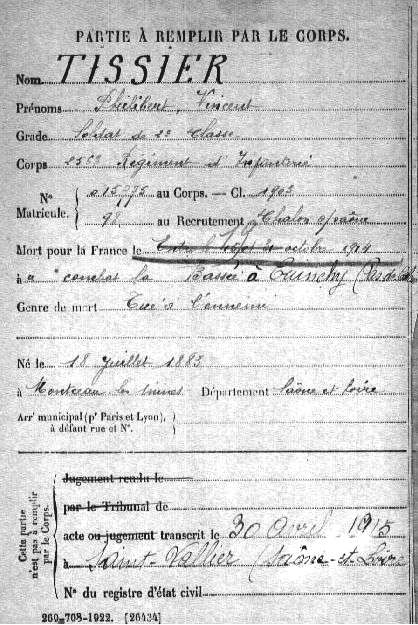 PARTIE À REMPLIR PAR LE CORPS.
Nom TISSIER
Prénoms Philibert, Vincent
Grade Soldat de 2e Classe
Corps 256e Régiment d'Infanterie
N° Matricule. { 015775 au Corps. — Cl. 1903
98 au Recrutement Chalon s/saône
Mort pour la France le octobre 1914
à combat la Bassée à Cuinchy (Pas de
Genre de mort Tué à l'ennemi
Né le 18 Juillet 1883
à Montceau les mines Département Saône et Loire
Arr' municipal (p' Paris et Lyon), à défaut rue et N°. }
Cette partie n'est pas à remplir par le Corps.
Jugement rendu le
par le Tribunal de
acte ou jugement transcrit le 30 Avril 1915
à Saint-Vallier (Saône-et-Loire
N° du registre d'état civil
269-708-1922. [26434]